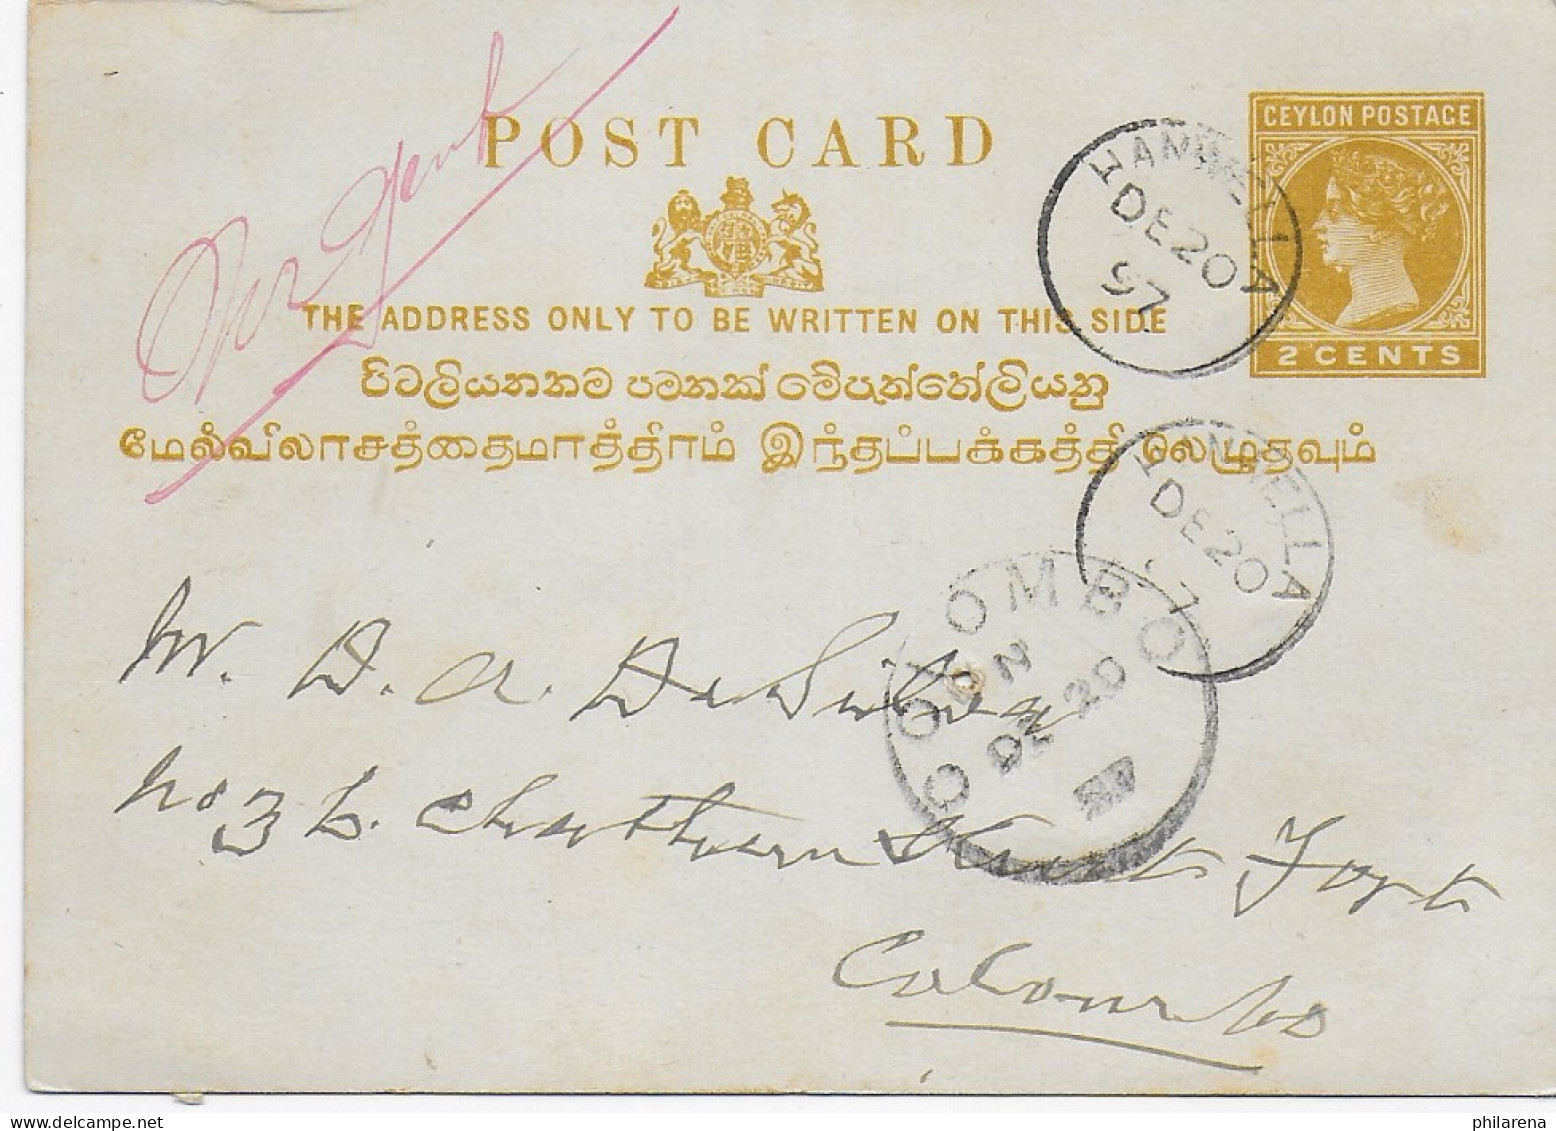 Urgent
POST CARD
CEYLON POSTAGE
2 CENTS
HANWELLA
DE 20
97
THE ADDRESS ONLY TO BE WRITTEN ON THIS SIDE
පිටලියනතම පමනක් මේපැත්තේලියනු
மேல்விலாசத்தைமாத்திரம் இந்தப்பக்கத்தி லெழுதவும்
HANWELLA
DE 20
7
COLOMBO
DE 20
Mr. D. A. De Silva
No 3 b. Chatham Street Fort
Colombo
philarena